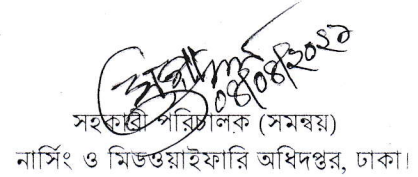 ০৪/০৪/২০২১
সহকারী পরিচালক (সমন্বয়)
নার্সিং ও মিডওয়াইফারি অধিদপ্তর, ঢাকা।